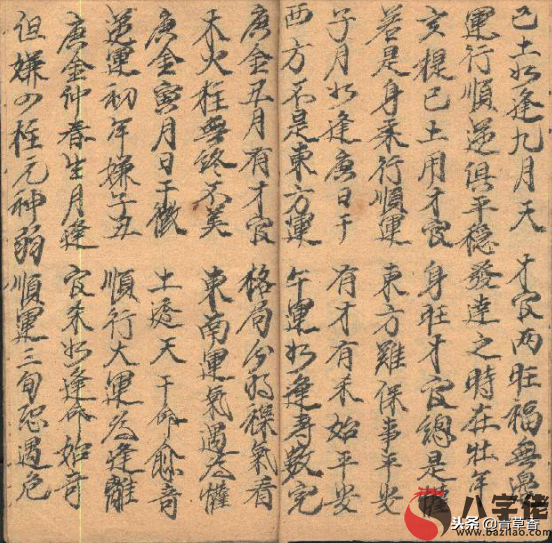 己土如逢九月天 才官兩旺福無邊
運行順逆俱平穩 發達之時在壯年
亥提己土用才官 身旺才官總是權
若是身柔行順運 東方難保事平安
子月如逢庚日干 有才有禾始平安
西方不是東方運 午運如逢壽數完
庚金丑月有才官 格局分明襍氣看
木火柱無終不美 東南運氣遇為懽
庚金寅月日干微 土透天干命愈奇
逆運初年嫌子丑 順行大運為逢離
庚金仲春生月逢 官來如逢命始奇
但嫌四柱元神弱 順運三旬恐遇危
八字佬
www.bazilao.com
头条 @青草香